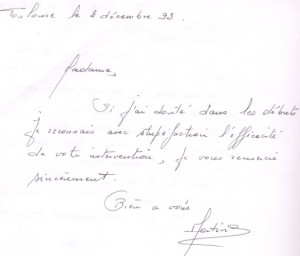 Toulouse le 2 décembre 93.
Madame,
Si j'ai douté dans les débuts
je reconnais avec stupéfaction l'efficacité
de votre intervention, je vous remercie
sincèrement.
Bien a vous
Martine